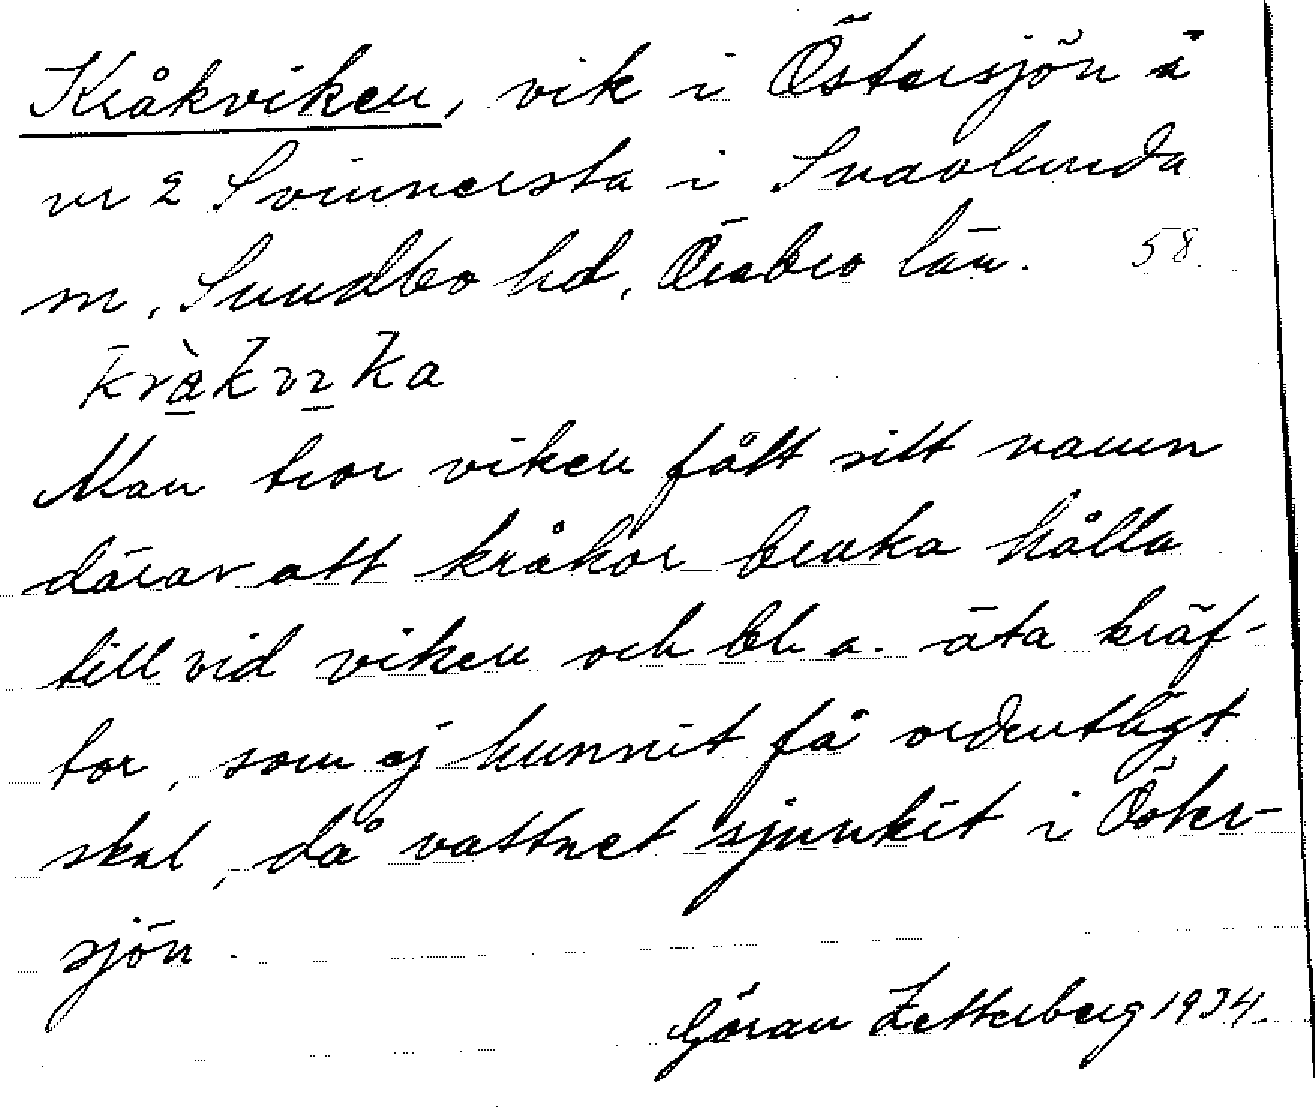 Kråkviken, vik i Östersjön å
nr 2 Svinnersta i Snavlunda
sn, Sundbo hd, Örebro län. 58.
kràkvıka
Man tror viken fått sitt namn
därav att kråkor bruka hålla
till vid viken och bl. a. äta kräf-
tor, som ej kunnit få ordentligt
skal, då vattnet sjunkit i Öster-
sjön.
Göran Zetterberg 1934.